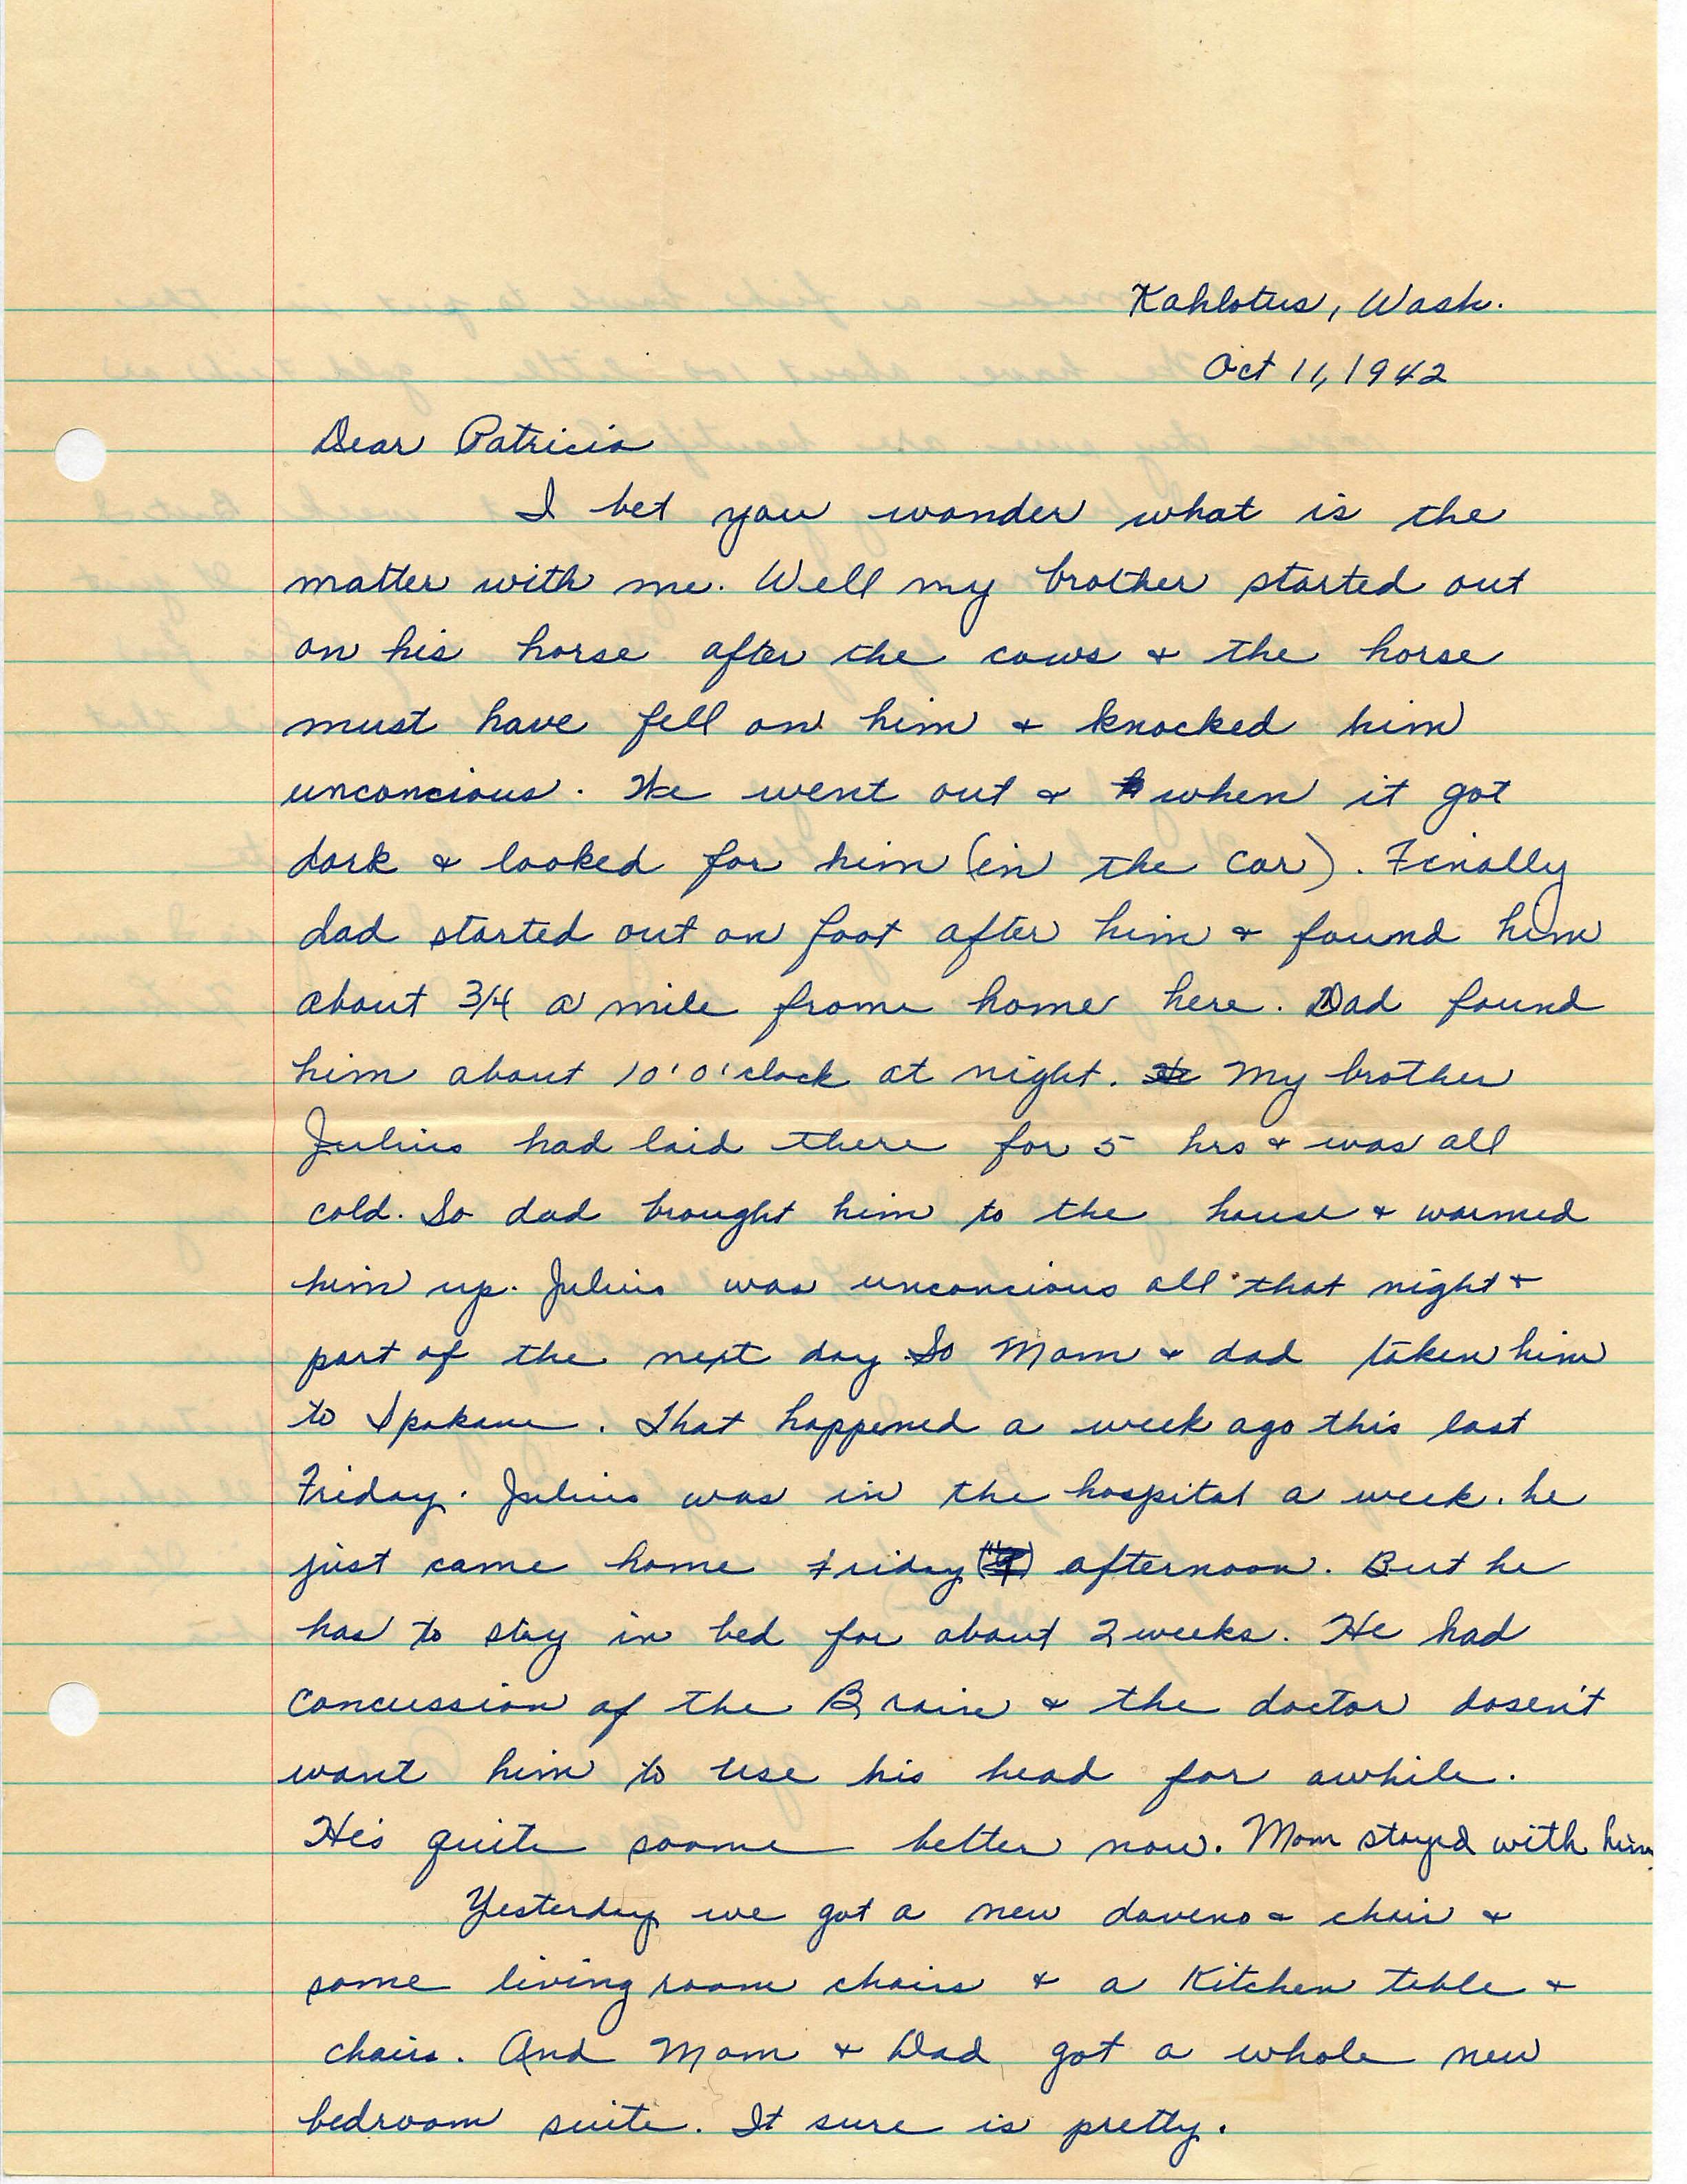 Kahlotus, Wash.
Oct 11, 1942
Dear Patricia
I bet you wonder what is the
matter with me. Well my brother started out
on his horse after the cows & the horse
must have fell on him & knocked him
unconcious. We went out & when it got
dark & looked for him (in the car). Finally
dad started out on foot after him & found him
about 3/4 a mile frome home here. Dad found
him about 10'0'clock at night. My brother
Julius had laid there for 5 hrs & was all
cold. So dad brought him to the house & warmed
him up. Julius was unconcious all that night &
part of the next day So Mom & dad taken him
to Spokane. That happened a week ago this last
Friday. Julius was in the hospital a week. he
just came home Friday afternoon. But he
has to stay in bed for about 2 weeks. He had
concussion of the Brain & the doctor dosen't
want him to use his head for awhile.
He's quite soome better now. Mom stayed with him.
Yesterday we got a new daveno & chair &
some living room chairs & a Kitchen table &
chairs. And Mom & Dad got a whole new
bedroom suite. It sure is pretty.